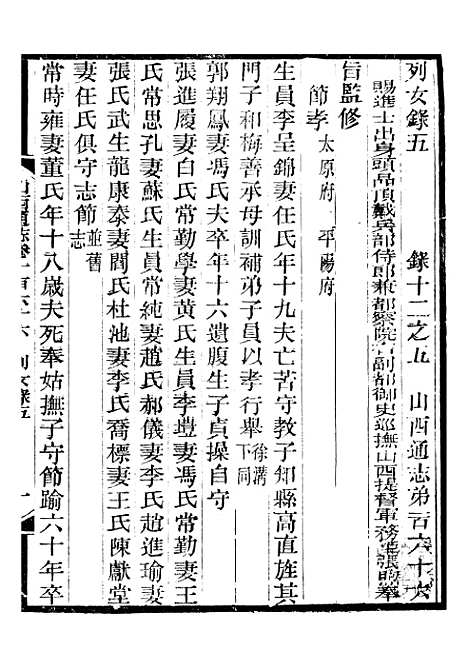 列女錄五　錄十二之五　山西通志第一百六十六
賜進士出身頭品頂戴兵部侍郎兼都察院右副都御史巡撫山西提督軍務張煦奉
旨監修
節孝 太原府 平陽府
生員李呈錦妻任氏年十九夫亡苦守教子知縣高直旌其
門子和梅善承母訓補弟子員以孝行舉 徐溝下同
郭翔鳳妻馮氏夫卒年十六遺腹生子貞操自守
張進履妻白氏常勤學妻黃氏生員李壇妻馮氏常勤妻王
氏常思孔妻蘇氏生員常純妻趙氏郝儀妻李氏趙進瑜妻
張氏武生龍康泰妻閻氏杜池妻李氏喬標妻王氏陳獻堂
妻任氏俱守志節 並舊志
常時雍妻董氏年十八歲夫死奉姑撫子守節踰六十年卒
山西通志卷一百六十六 列女錄五 一